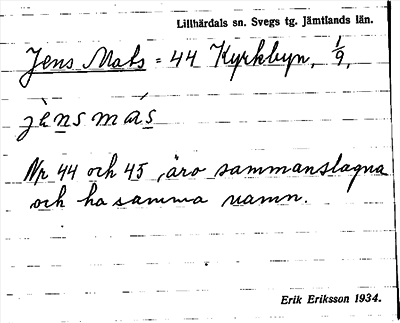 Lillhärdals sn. Svegs tg. Jämtlands län.
Jens Mats = 44 Kyrkbyn, 1/9,
jὲnsmás
Nr 44 och 45, äro sammanslagna
och ha samma namn.
Erik Eriksson 1934.